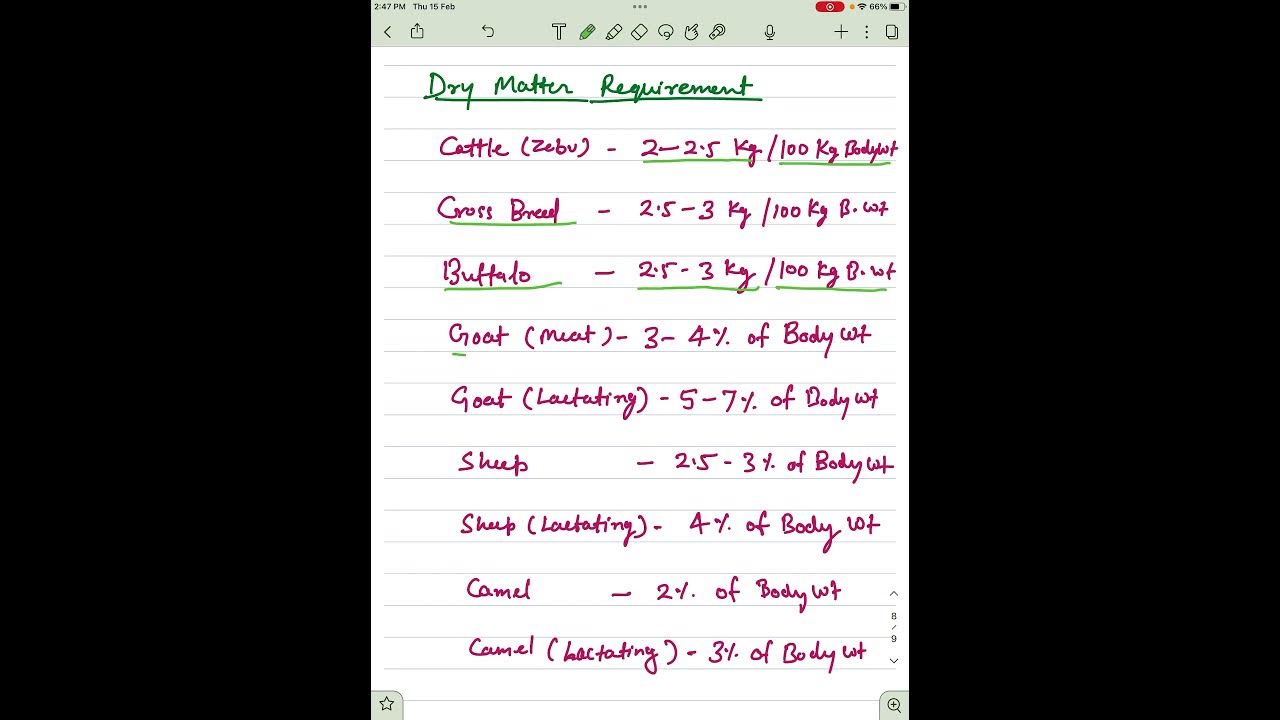 2:47 PM Thu 15 Feb
66%
Dry Matter Requirement
Cattle (Zebu) - 2-2.5 Kg /100 Kg Bodywt
Cross Breed - 2.5-3 Kg /100 Kg B.wt
Buffalo - 2.5-3 Kg /100 Kg B.wt
Goat (Meat) - 3-4% of Body wt
Goat (Lactating) - 5-7% of Body wt
Sheep - 2.5-3% of Body wt
Sheep (Lactating) - 4% of Body wt
Camel - 2% of Body wt
Camel (Lactating) - 3% of Body wt
8
/
9